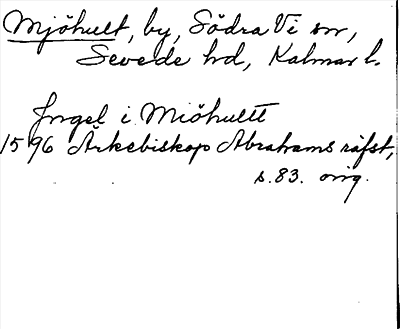 Mjöhult, by, Södra Vi sn,
Sevede hd, Kalmar l.
Ingel i Miöhultt
1596 Ärkebiskop Abrahams räfst,
s. 83. orig.